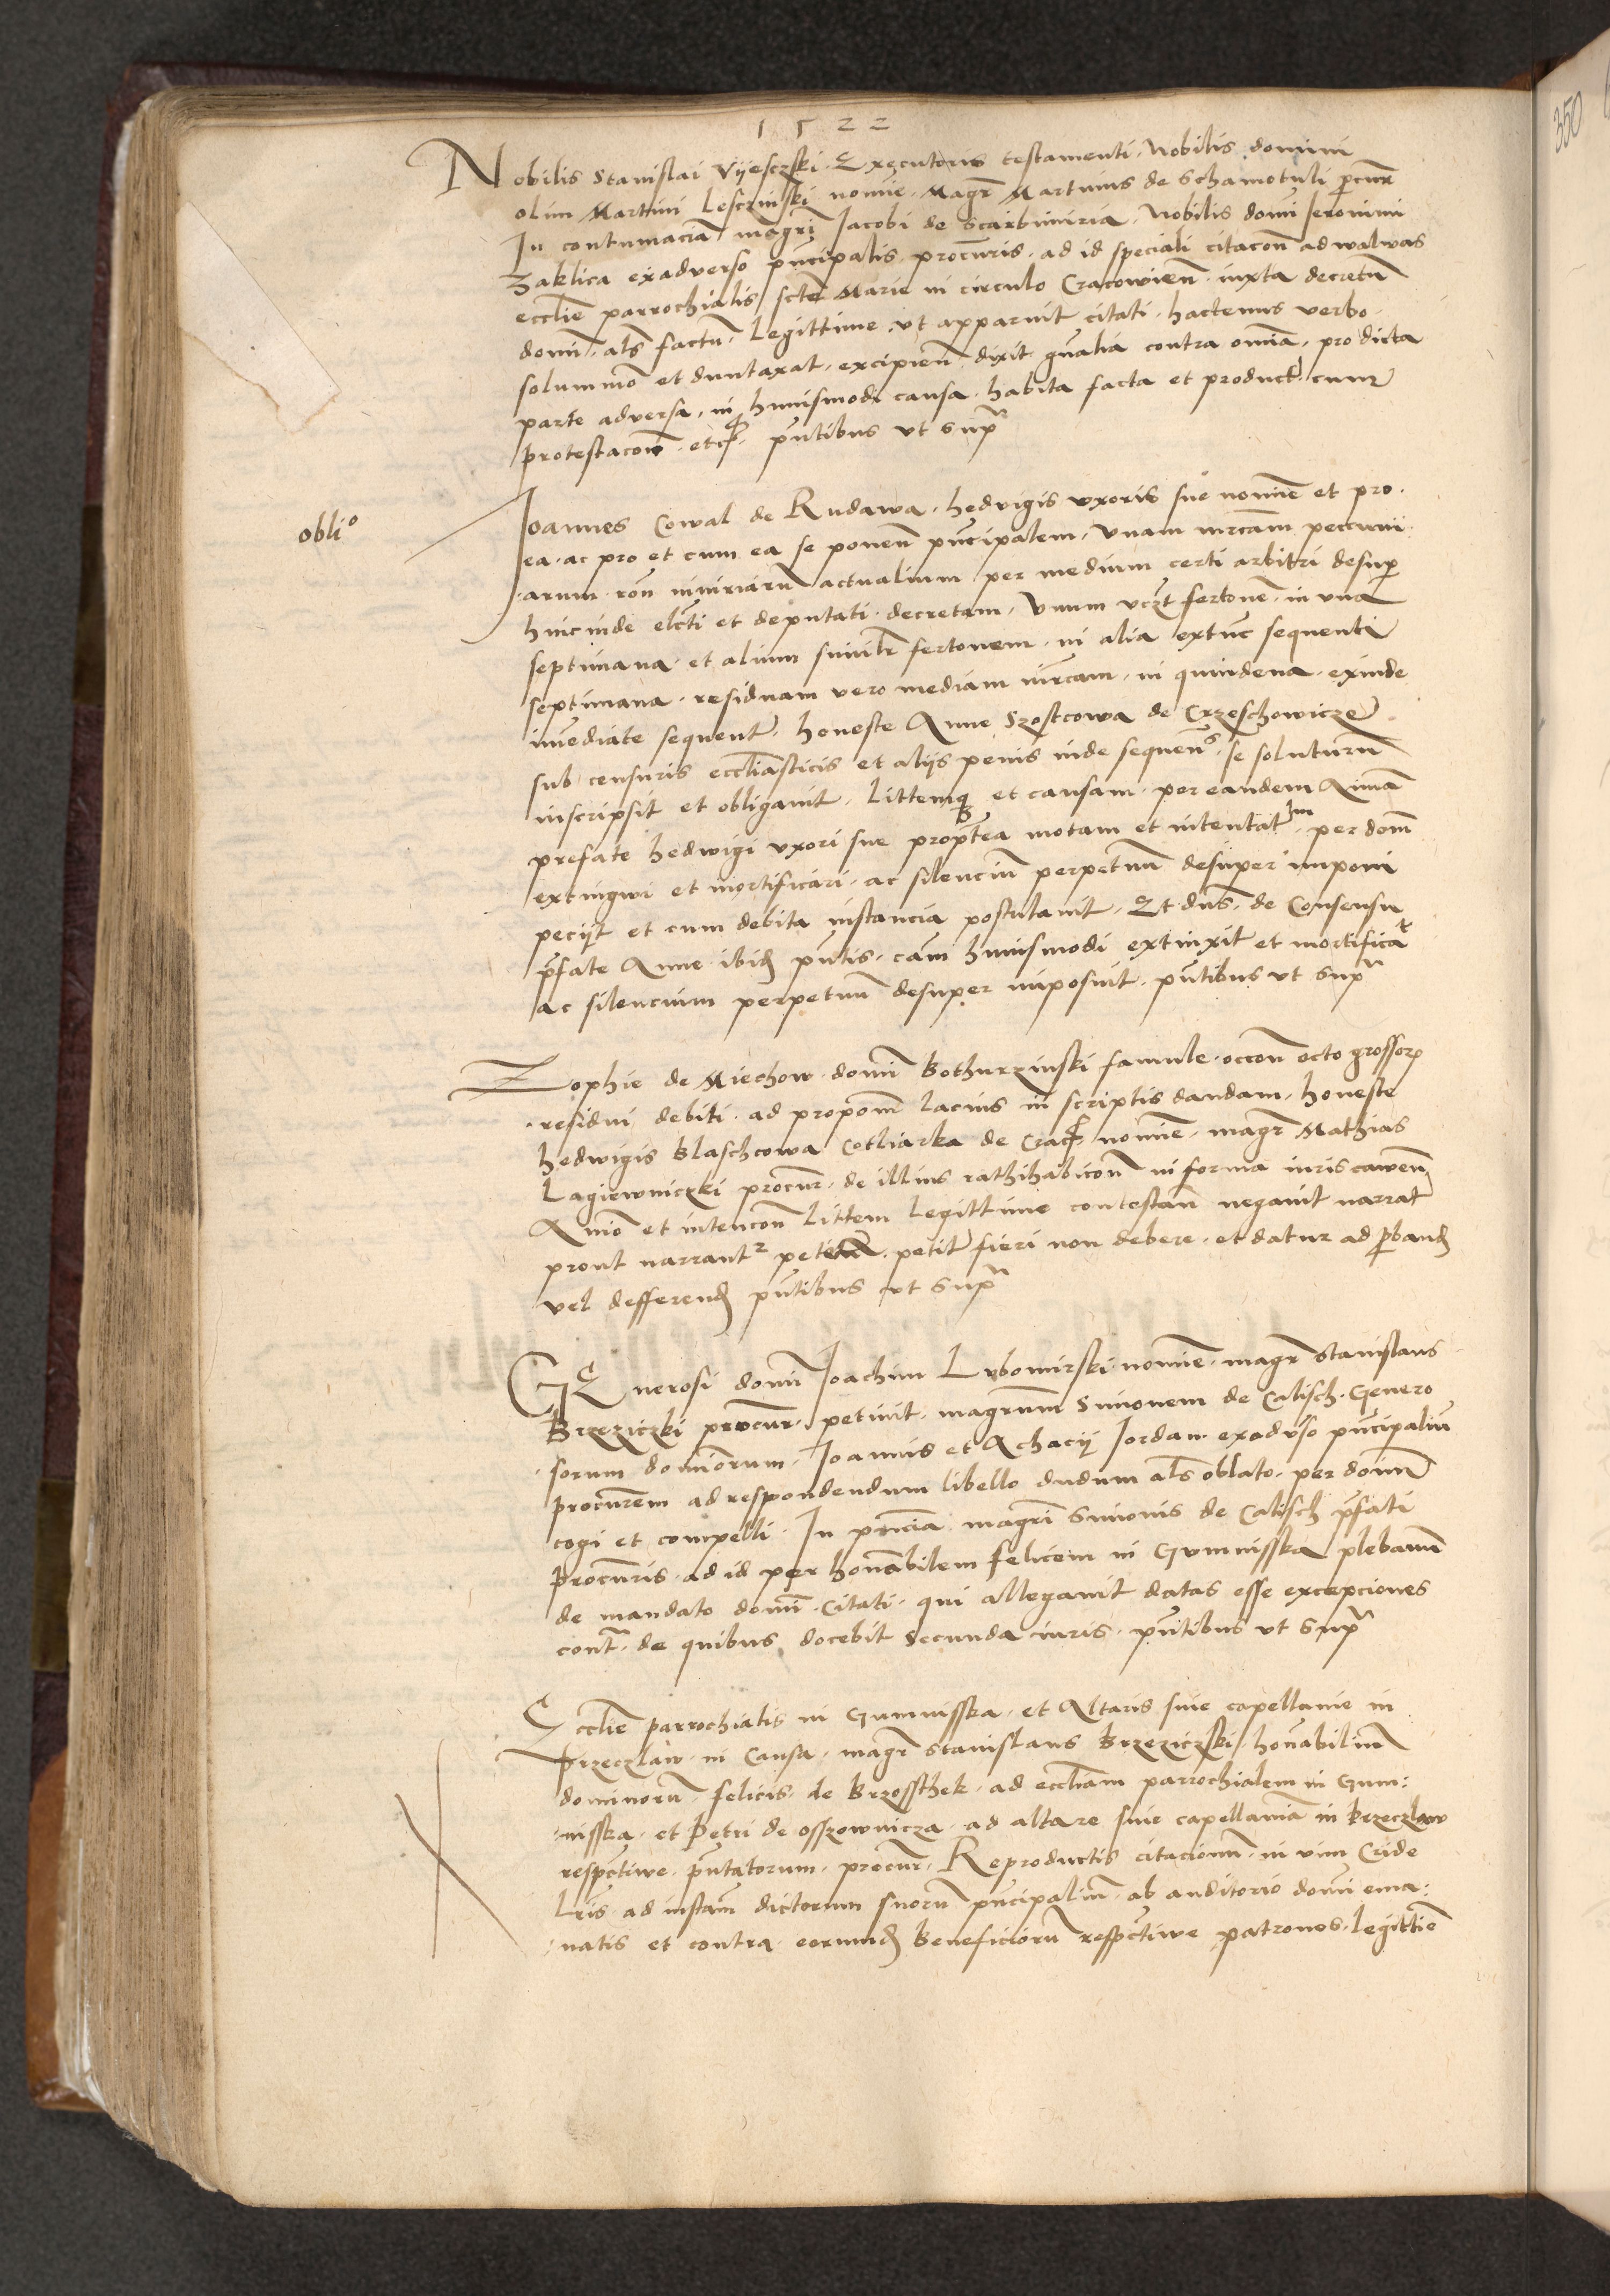 1522
Nobilis Stanislai Vijesczski Executoris testamenti Nobilis domini
olim Martini Lesczinski nomine Magr Martinus de Schamotuli procur
In contumaciam magri Iacobi de Scarbimiria Nobilis domi Ieronimi
Zaklica exadverso principalis procuris ad id speciali citacon ad walwas
ecclie parrochialis scte Marie in circulo Cracowien iuxta decretum
domi als factu Legittime vt apparuit citati hactenus verbo
solummo et duntaxat excipien dixit gnalia contra omnia pro dicta
parte adversa in huiusmodi causa habita facta et product cum
protestacon etc pntibus vt supra
oblio
Ioannes Cowal de Rudawa hedvigis vxoris sue nomine et pro
ea ac pro et cum ea se ponen principalem Vnam mrcam peccuni
arum ron iniuriaru actualium per medium certi arbitri desuper
hincinde electi et deputati decretam Vnum vczt fertonem in vna
septimana et alium similr fertonem in alia extunc sequenti
septimana residuam vero mediam mrcam in quindena exinde
immediate sequent honeste Anne Szostcowa de Crzeschowicze
sub censuris ecclesiasticis et alijs penis inde sequens se soluturu
inscripsit et obligavit Littemq et causam per eandem Annam
prefate hedwigi vxori sue propterea motam et intentatam per dom
extingwi et mortificari ac silencium perpetuum desuper imponi
peciit et cum debita instancia postulavit Et dns de Consensu
prfate Anne ibid pntis cam huiusmodi extinxit et mortificat
ac silencium perpetuum desuper imposuit pntibus vt supra
Zophie de Miechow domi Bothurzinski famule occon octo grossorum
residui debiti ad propom lacius in scriptis dandam honeste
hedwigis Blaschcowa Cotliarka de Crac nomine magr Mathias
Lagiewniczki procur de illius rathihabicon in forma iuris cawen
Animo et intencon Littem Legittime contestan negavit narrat
prout narrantr petit petit fieri non debere et datur ad proband
vel defferend pntibus vt supra
GEnerosi domi Ioachim Lubomirski nomine magr Stanislaus
Brzeziczki procur petivit magrum Simonem de Calisch Genero
sorum dominorum Ioannis et Achacij Iordan exadverso principaliu
procurem ad respondendum libello dudum als oblato per domi
cogi et compelli In pncia magri Simonis de Calisch prfati
procuris ad id per honabilem felicem in Gumnisska plebanum
de mandato domi citati qui allegavit datas esse excepciones
contra de quibus docebit secunda iuris pntibus vt supra
Ecclie parrochialis in Gumnisska et Altaris sive capellanie in
Przeczlaw in Causa magr Stanislaus Brzeziczski honabilium
dominoru felicis de Brzossthek ad eccliam parrochialem in Gum:
nisska et Petri de osszownicza ad altare sive capellaniam in przeczlaw
respective pntatorum procur Reproductis citacionu in vim Cride
Lris ad instam dictorum suoru principaliu ab auditorio domi ema:
natis et contra eorumd Beneficioru respective patronos Legittie
350